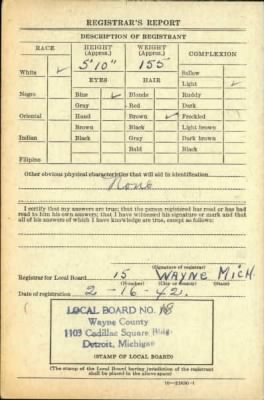 REGISTRAR'S REPORT
DESCRIPTION OF REGISTRANT
RACE HEIGHT (Approx.) WEIGHT (Approx.) COMPLEXION
5'10" 155
White ✓ Sallow
EYES HAIR Light ✓
Negro Blue ✓ Blonde Ruddy
Gray Red Dark
Oriental Hazel Brown ✓ Freckled
Brown Black Light brown
Indian Black Gray Dark brown
Bald Black
Filipino
Other obvious physical characteristics that will aid in identification
None
I certify that my answers are true; that the person registered has read or has had
read to him his own answers; that I have witnessed his signature or mark and that
all of his answers of which I have knowledge are true, except as follows:
(Signature of registrar)
Registrar for Local Board 15 WAYNE MICH
(Number) (City or county) (State)
Date of registration 2-16-42.
LOCAL BOARD NO. 18
Wayne County
1103 Cadillac Square Bldg.
Detroit, Michigan
(STAMP OF LOCAL BOARD)
(The stamp of the Local Board having jurisdiction of the registrant
shall be placed in the above space)